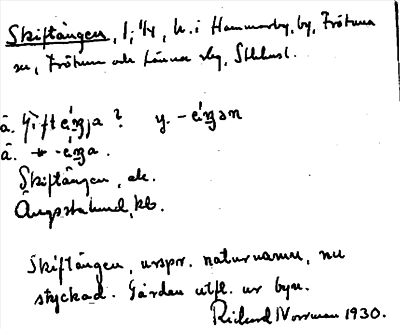 Skiftängen, 1, 1/4, h. i Hammarby, by, Frötuna
sn, Frötuna och Länna skg, Sthlmsl.
ä. y. -éŋən
ä. -éŋa.
Skiftängen, ak.
Ängsstalund, kb.
Skiftängen, urspr. naturnamn, nu
styckad. Gården utfl. ur byn.
Richard Norrman 1930.